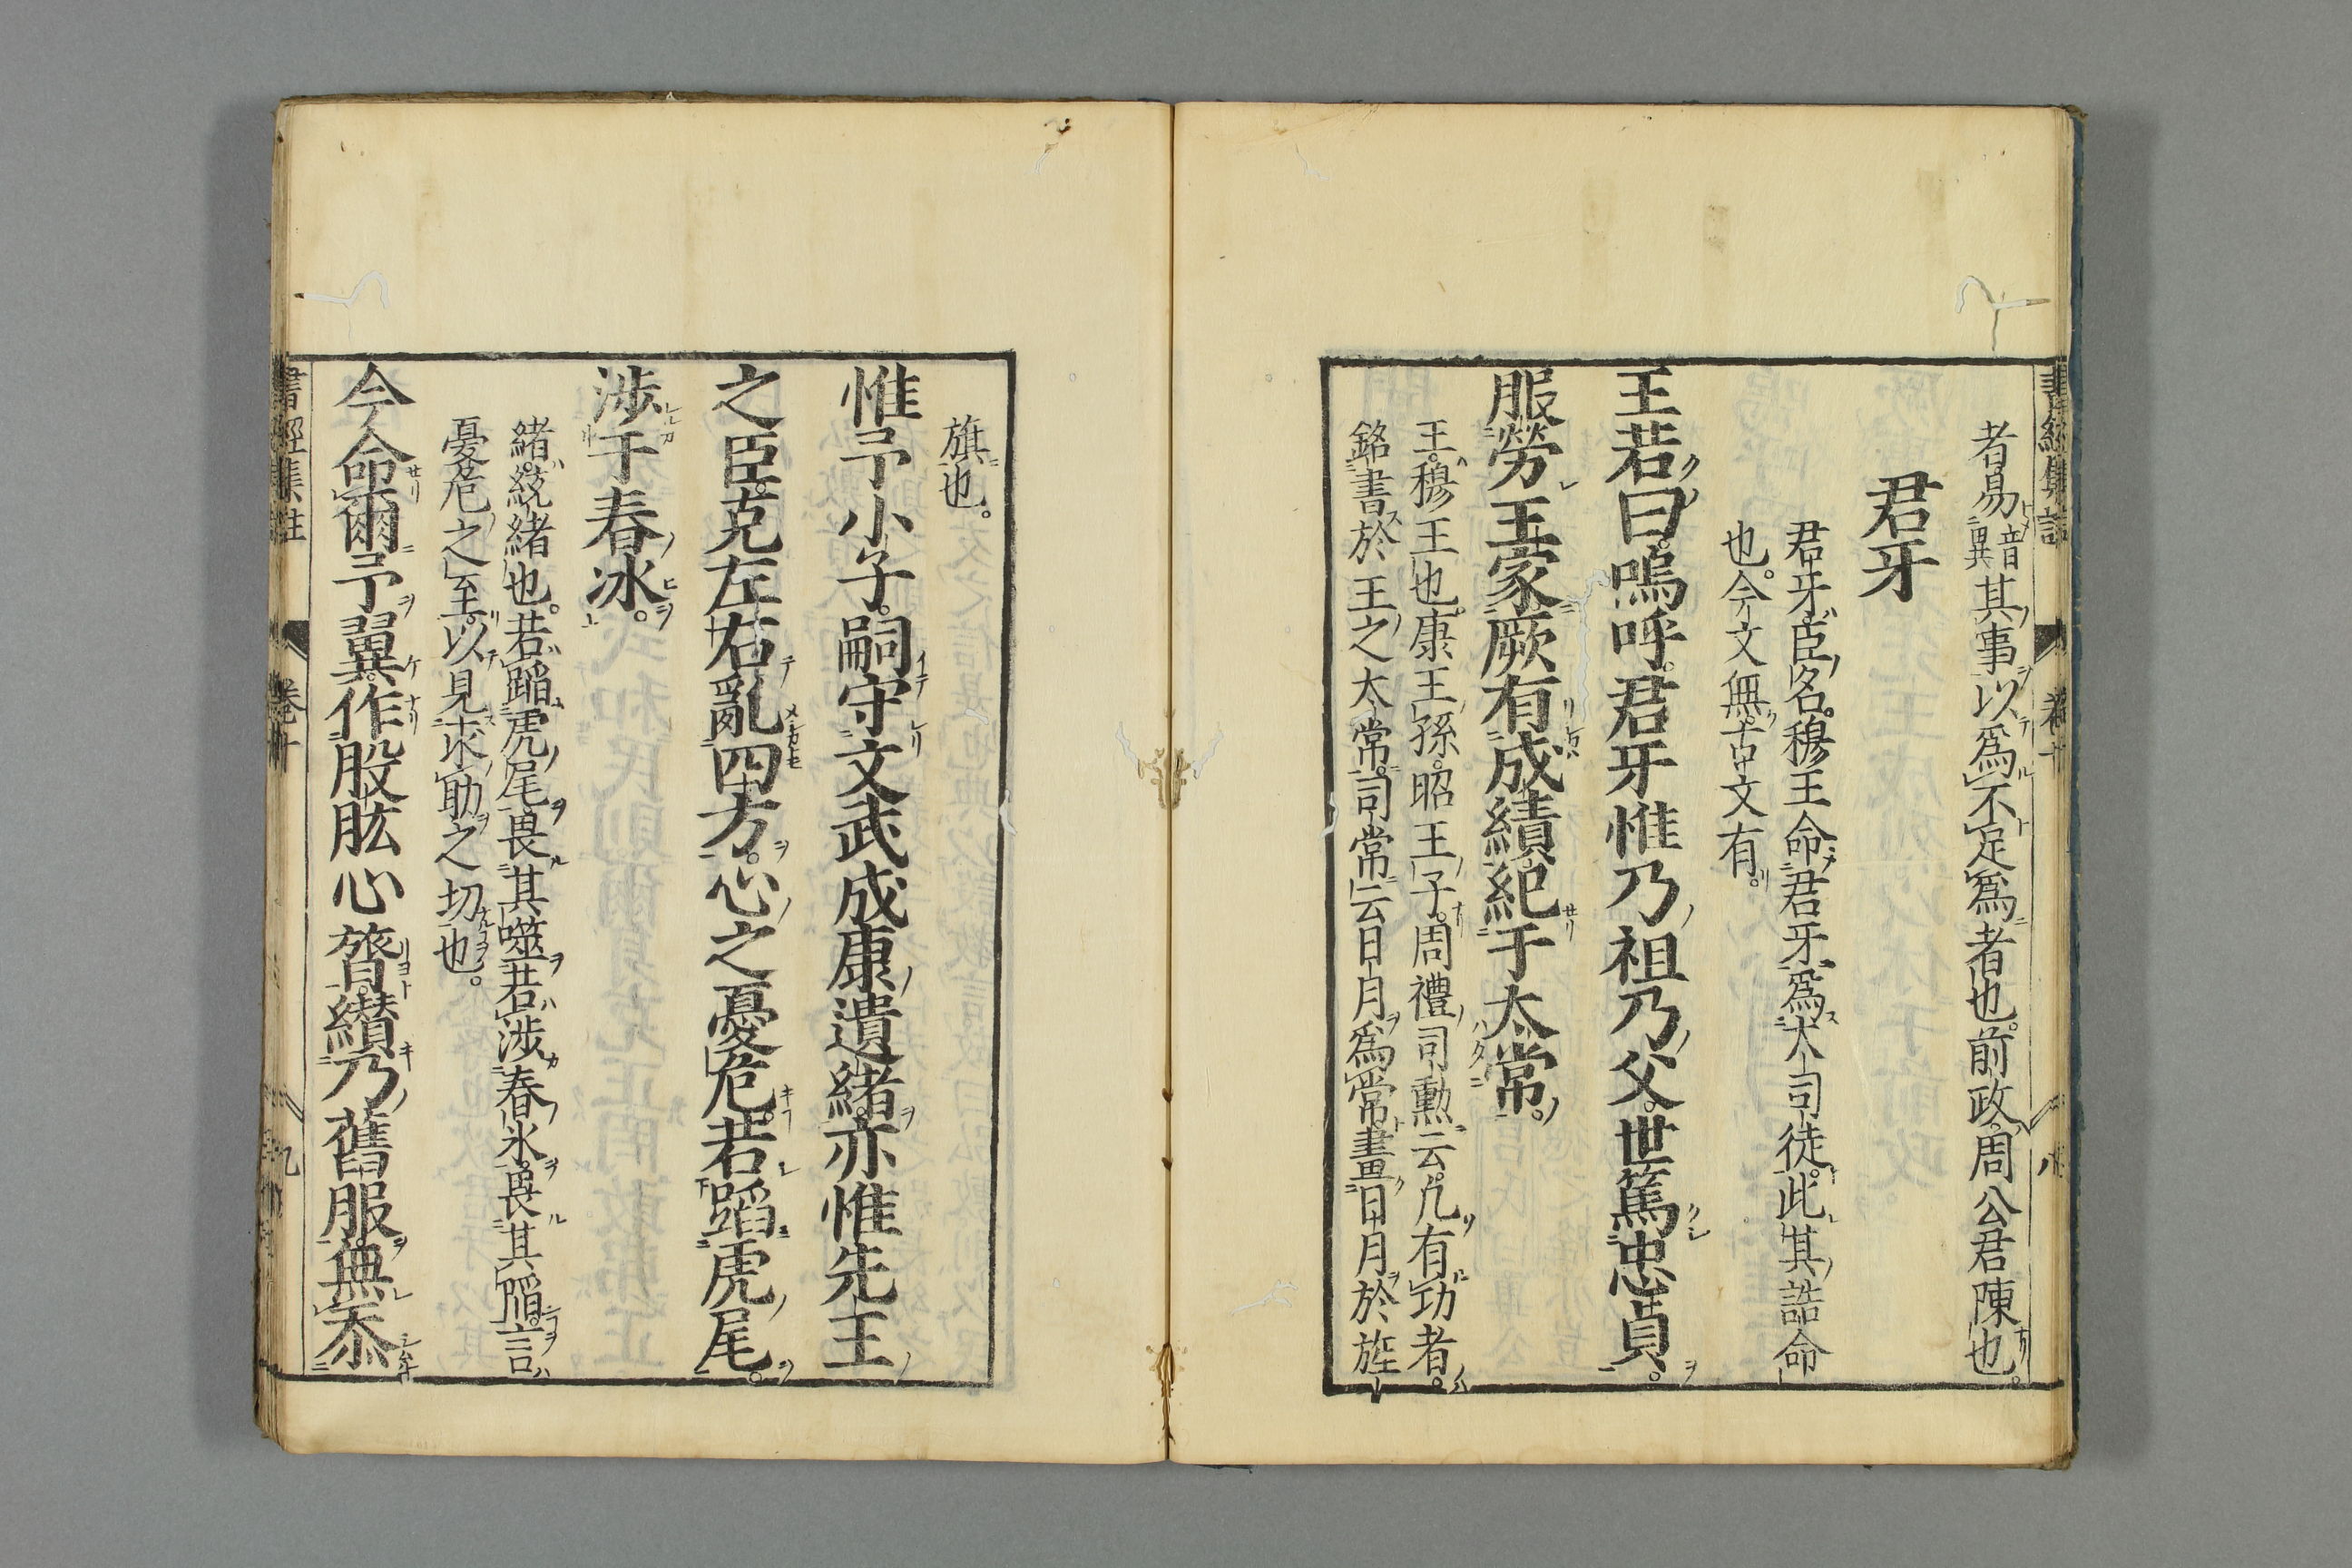 者易音異其事以為不足為者也。前政周公君陳也。
君牙
君牙臣名。穆王命君牙為大司徒。此其誥命
也。今文無。古文有。
王若曰。嗚呼。君牙惟乃祖乃父。世篤忠貞。
服勞王家。厥有成績。紀于太常。
王。穆王也。康王孫。昭王子。周禮司勲云。凡有功者。
銘書於王之太常。司常云日月為常。畫日月於旌
旗也。
惟予小子。嗣守文武成康遺緒。亦惟先王
之臣。克左右亂四方。心之憂危。若蹈虎尾。
涉于春冰。
緒。統緒也。若蹈虎尾。畏其噬。若涉春氷。畏其陷。言
憂危之至。以見求助之切也。
今命爾予翼。作股肱心膂。纉乃舊服。無忝
書經集註
卷十
八
書經集註
卷十
九